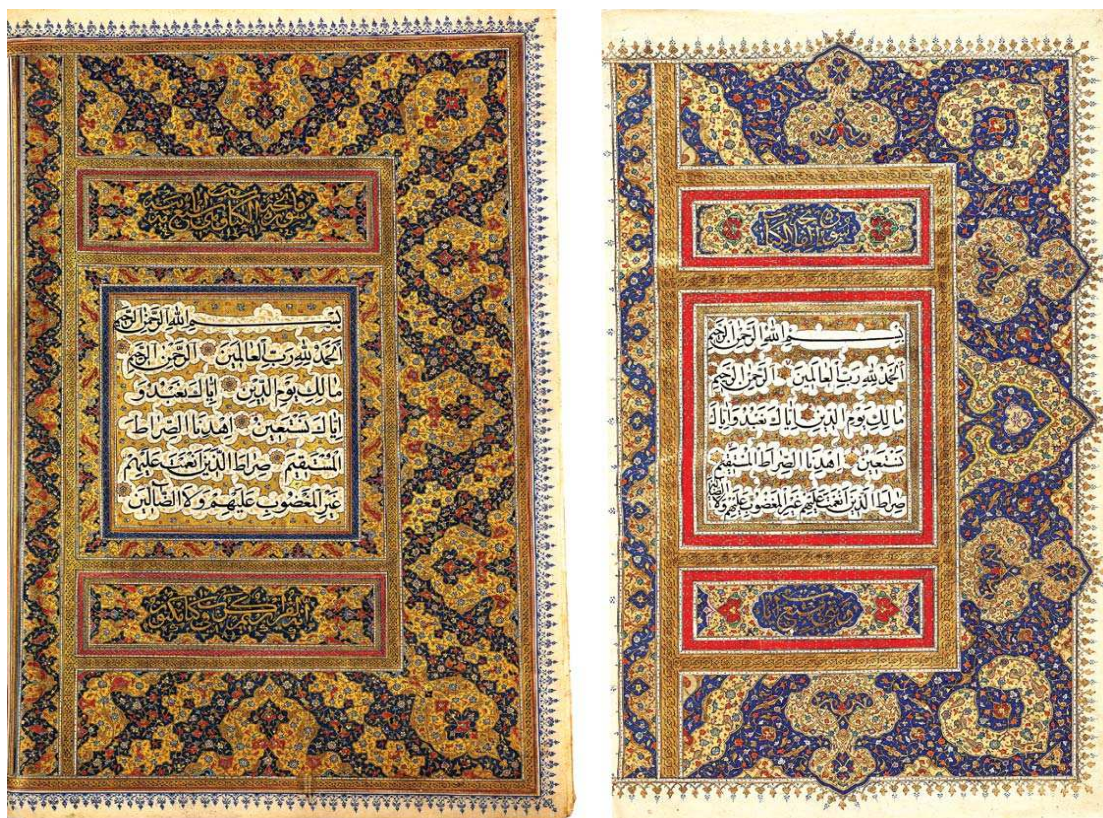 سورة فاتحة الكتاب
بِسْمِ اللهِ الرَّحْمٰنِ الرَّحِيمِ
اَلْحَمْدُ لِلّٰهِ رَبِّ الْعَالَمِينَ اَلرَّحْمٰنِ الرَّحِيمِ
مَالِكِ يَوْمِ الدِّينِ اِيَّاكَ نَعْبُدُ وَاِيَّاكَ
نَسْتَعِينُ اِهْدِنَا الصِّرَاطَ الْمُسْتَقِيمَ
صِرَاطَ الَّذِينَ اَنْعَمْتَ عَلَيْهِمْ غَيْرِ الْمَغْضُوبِ عَلَيْهِمْ وَلَا الضَّالِّينَ
سورة فاتحة الكتاب سبع
بِسْمِ اللهِ الرَّحْمٰنِ الرَّحِيمِ
اَلْحَمْدُ لِلّٰهِ رَبِّ الْعَالَمِينَ اَلرَّحْمٰنِ الرَّحِيمِ
مَالِكِ يَوْمِ الدِّينِ اِيَّاكَ نَعْبُدُ وَ
اِيَّاكَ نَسْتَعِينُ اِهْدِنَا الصِّرَاطَ
الْمُسْتَقِيمَ صِرَاطَ الَّذِينَ اَنْعَمْتَ عَلَيْهِمْ
غَيْرِ الْمَغْضُوبِ عَلَيْهِمْ وَلَا الضَّالِّينَ
انه لقرآن كريم في كتاب مكنون